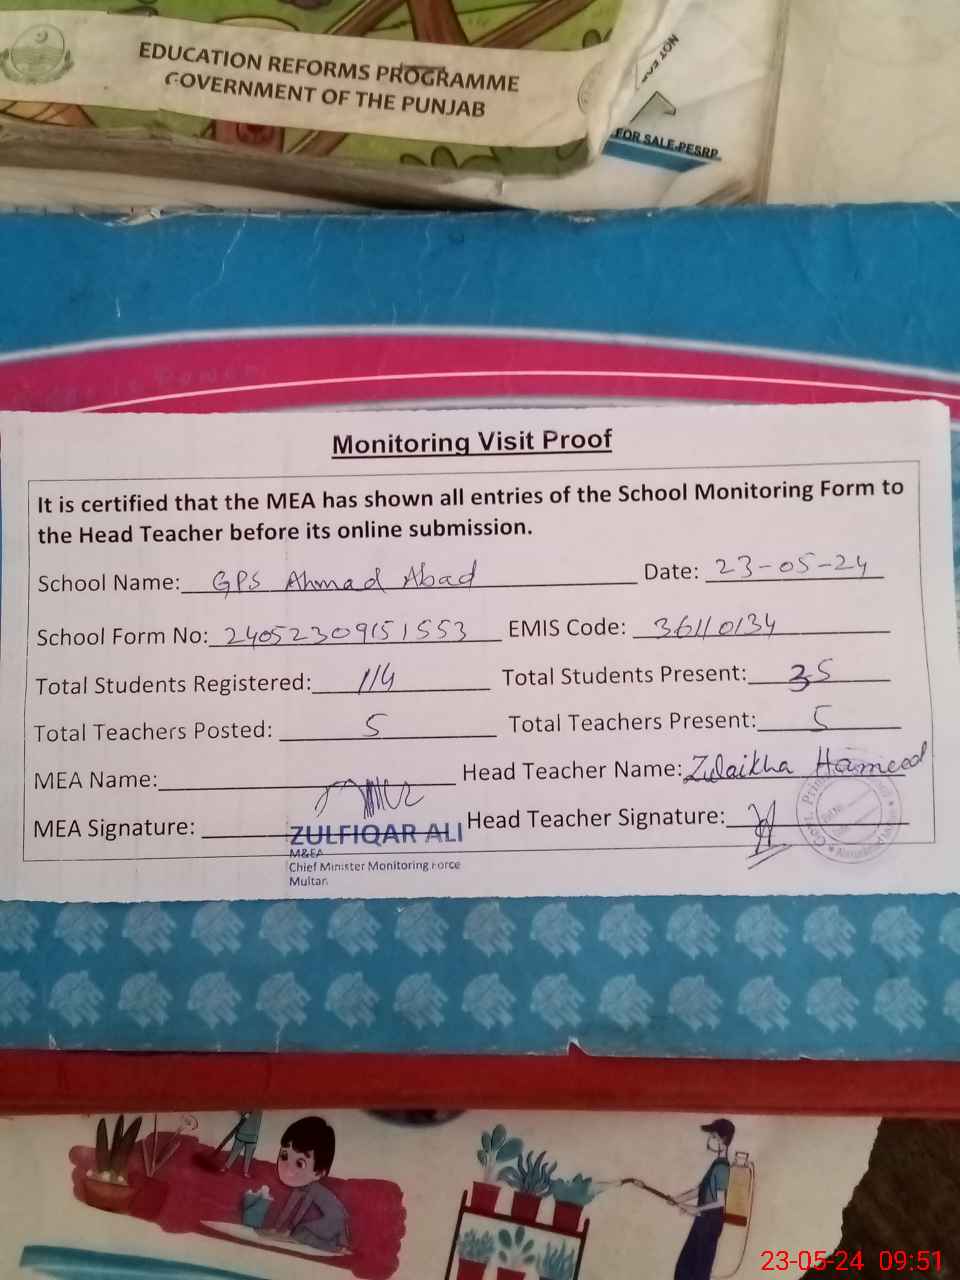 EDUCATION REFORMS PROGRAMME
GOVERNMENT OF THE PUNJAB
NOT FOR
FOR SALE-PESRP
Monitoring Visit Proof
It is certified that the MEA has shown all entries of the School Monitoring Form to
the Head Teacher before its online submission.
School Name: GPS Ahmad Abad Date: 23-05-24
School Form No: 24052309151553 EMIS Code: 36110134
Total Students Registered: 114 Total Students Present: 35
Total Teachers Posted: 5 Total Teachers Present: 5
MEA Name: Head Teacher Name: Zulaikha Hameed
MEA Signature: Head Teacher Signature:
ZULFIQAR ALI
M&EA
Chief Minister Monitoring Force
Multan
23-05-24 09:51